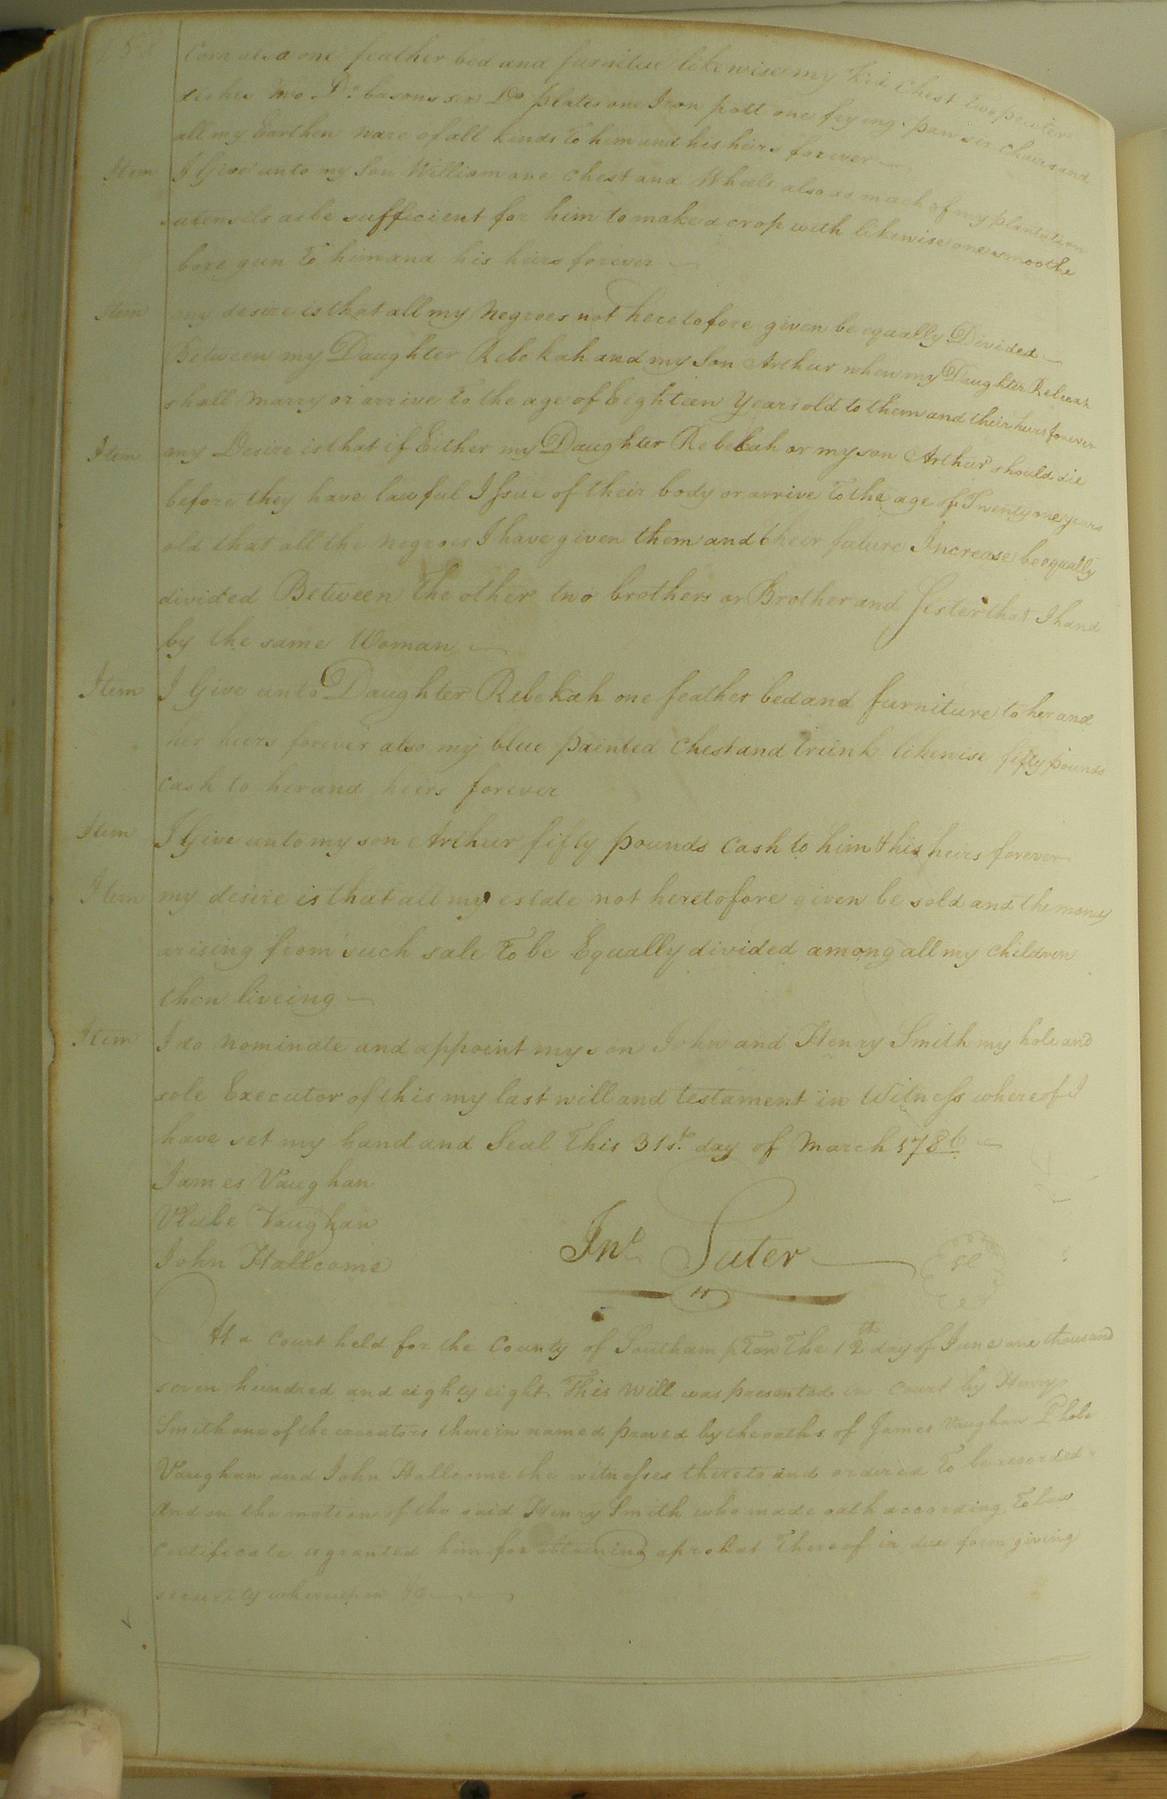 Corn also one feather bed and furnitue likewise my Red Chest two pewter
dishes two Do. basons six Do plates one Iron pott one frying pan six chairs and
all my Earthen ware of all kinds To him and his heirs forever
Item I Give unto my Son William one chest and Wheels also as much of my plantation
utensils as be sufficient for him to make a crop with likewise one smoothe
bore gun To him and his heirs forever
Item my desire is that all my Negroes not heretofore given be equally Divided
Between my Daughter Rebekah and my Son Arthur when my Daughter Rebecah
shall marry or arrive To the age of Eighteen years old to them and their heirs forever
Item my Desire is that if Either my Daughter Rebekah or my son Arthur should die
before they have lawful Issue of their body or arrive To the age of Twenty one years
old that all the negroes I have given them and their future Increase be equally
divided Between the other two brothers or Brother and Sister that I hand
by the same Woman
Item I Give unto Daughter Rebekah one feather bed and furniture to her and
her heirs forever also my blue painted Chest and trunk likewise fifty pounds
Cash to her and heirs forever
Item I Give unto my son Arthur fifty pounds Cash to him & his heirs forever
Item my desire is that all my estate not heretofore given be sold and the money
arising from such sale To be Equally divided among all my children
then liveing
Item I do nominate and appoint my son John and Henry Smith my hole and
sole Executor of this my last will and testament in Witness whereof I
have set my hand and Seal This 31st. day of March 1786
James Vaughan
Vaughan
John Hallcome
Jno. Suter
At a Court held for the County of Southampton The 12th day of June one thousand
seven hundred and eighty eight This Will was presented in Court by Henry
Smith one of the executors therein named proved by the oaths of James Vaughan Phebe
Vaughan and John Hallcome the witnesses thereto and ordered To be recorded
And on the motion of the said Henry Smith who made oath according To law
Certificate is granted him for obtaining a probat Thereof in due form giving
security whereupon &c